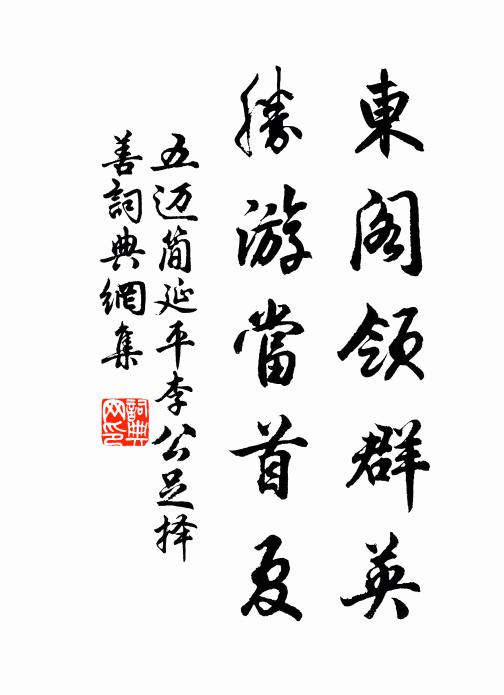 東阁領群英
勝游當首夏
五迈简延平李公足择
善詞典網集
詞典
网印